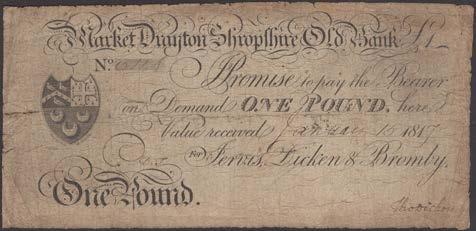 Market Drayton Shropshire Old Bank £1
No.
I Promise to pay the Bearer
on Demand ONE POUND, here
Value received 15 1817
For Jervis, Dicken & Bromby.
One Pound.